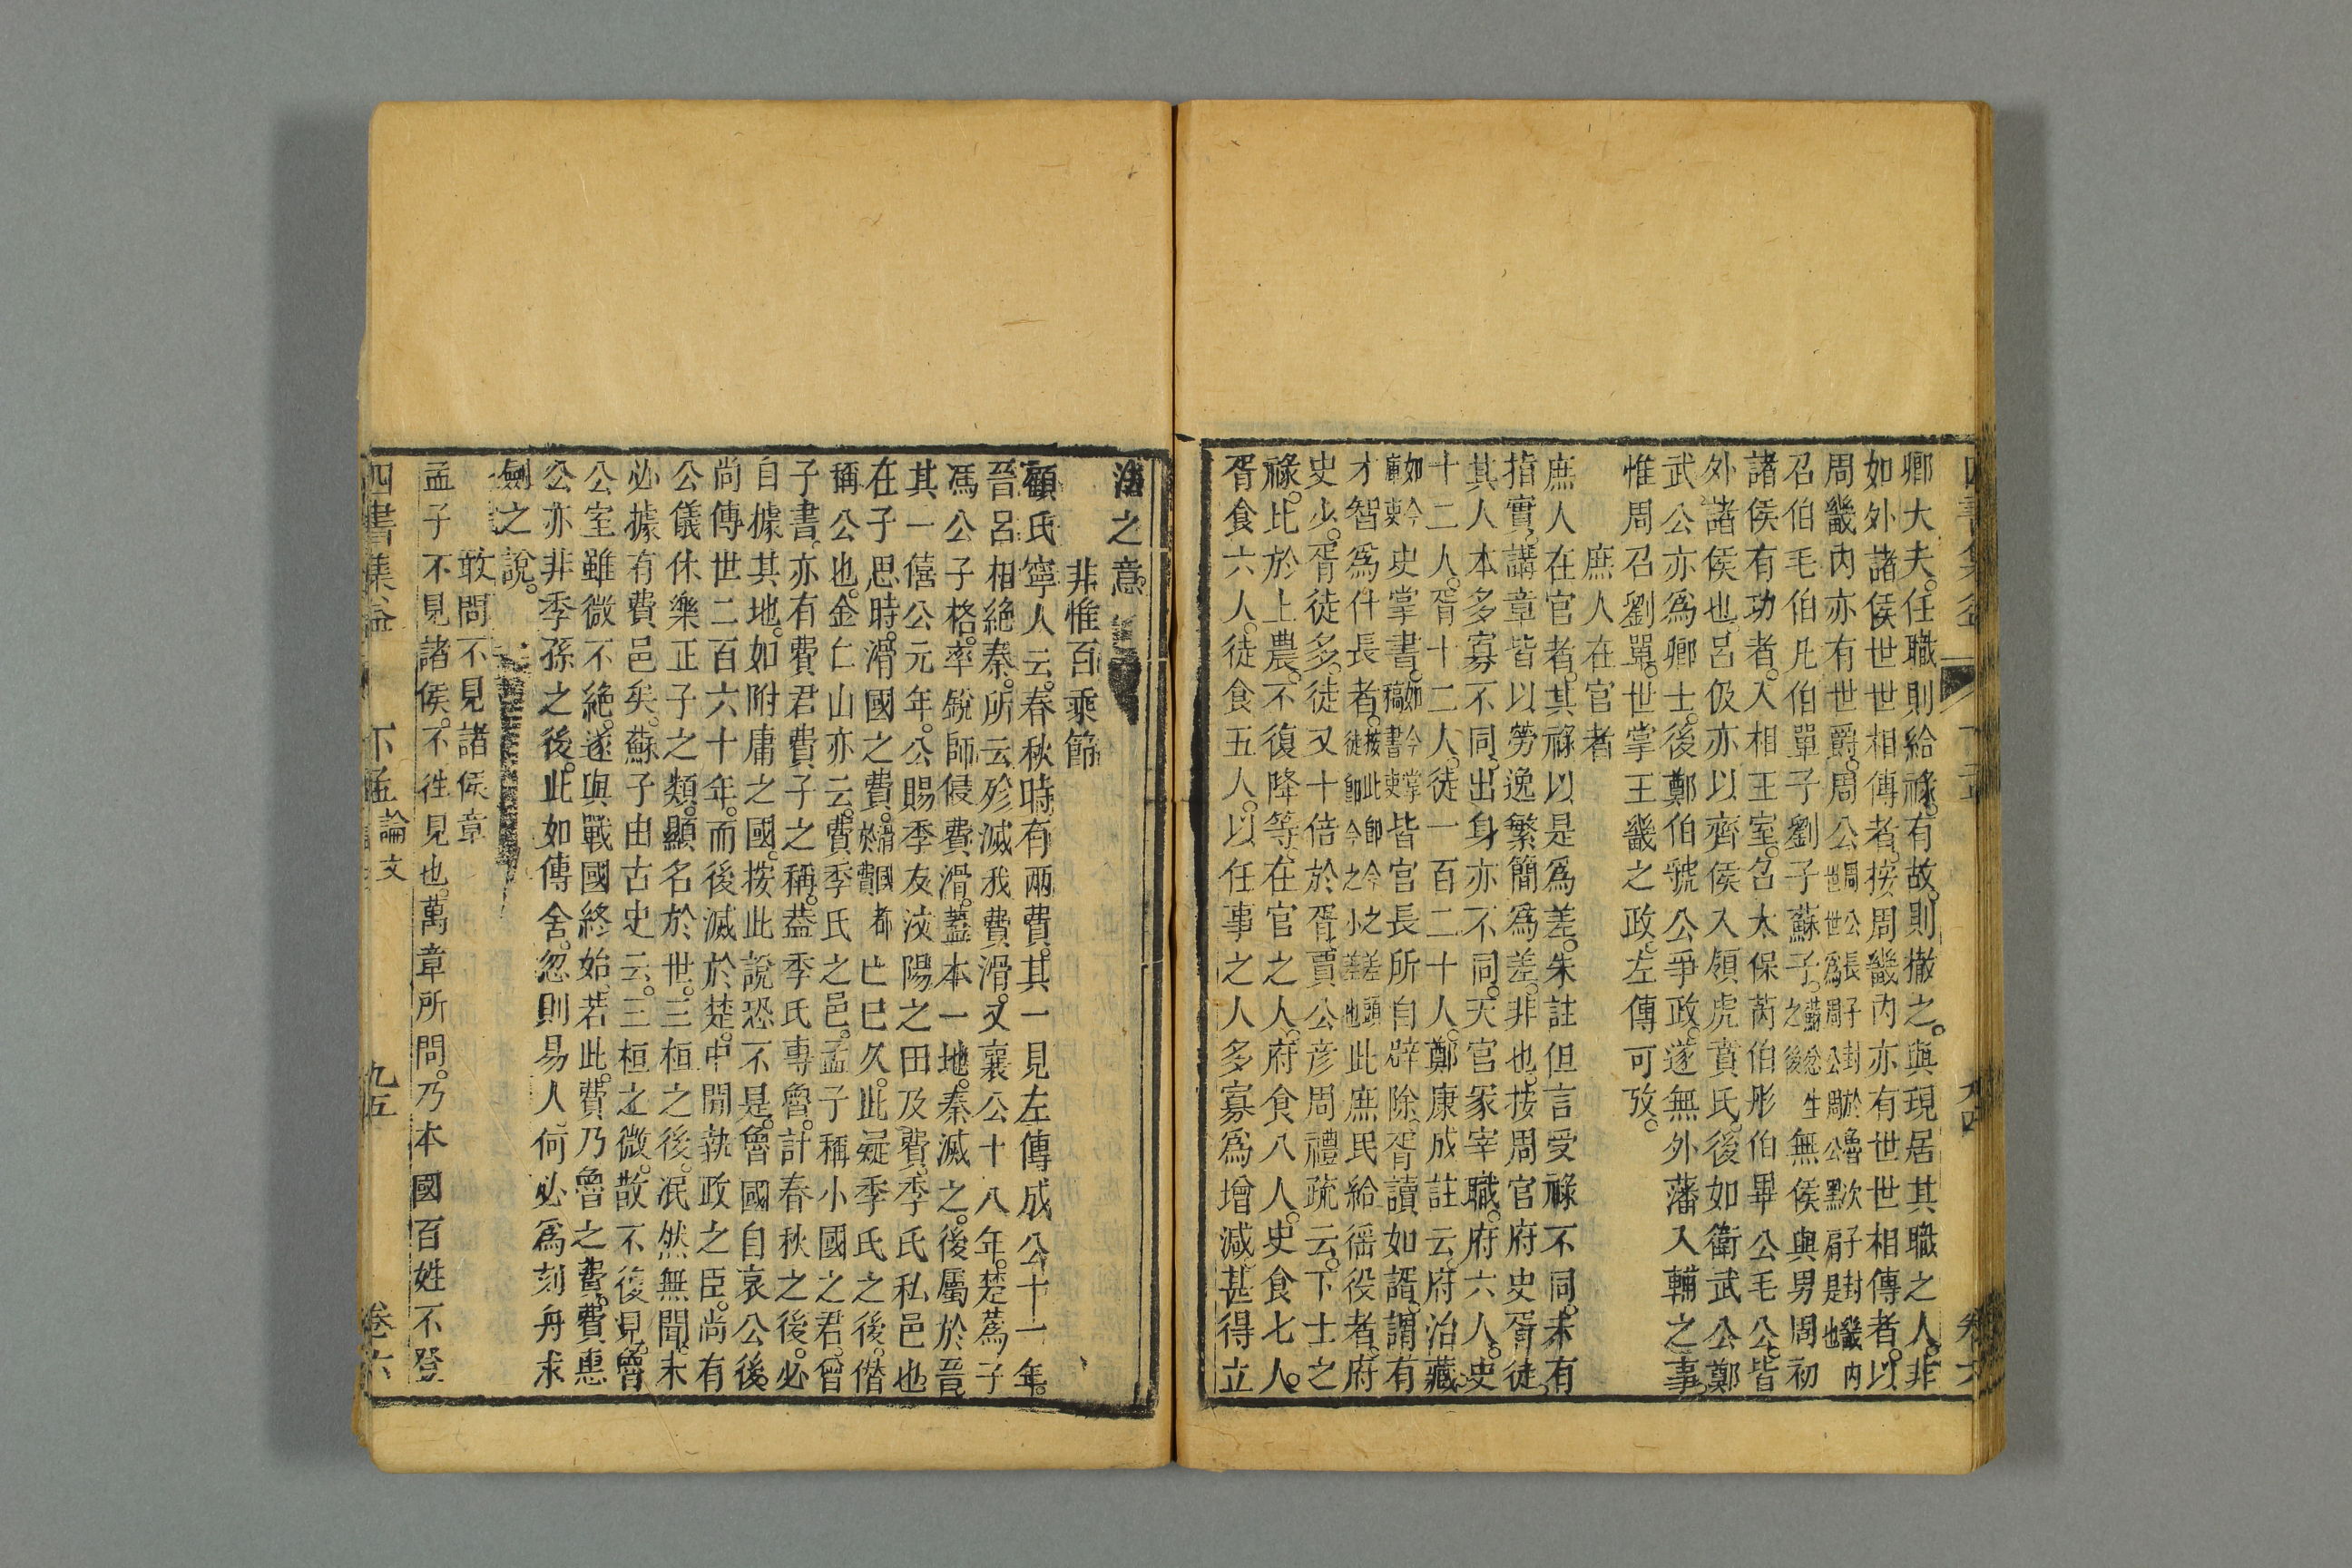 卿大夫。任職則給祿。有故。則撤之。與現居其職之人。非
如外諸侯世世相傳者。按周畿內亦有世世相傳者。以
周畿內亦有世爵。周公周公長子封於魯次子封畿內世世為周公周公黑肩是也
召伯毛伯凡伯單子劉子蘇子。蘇忿生之後無侯與男周初
諸侯有功者。入相王室。召太保芮伯彤伯畢公毛公。皆
外諸侯也。呂伋亦以齊侯入領虎賁氏。後如衛武公鄭
武公亦爲卿士。後鄭伯虢公爭政。遂無外藩入輔之事。
惟周召劉單。世掌王畿之政。左傳可攷。
庶人在官者
庶人在官者。其祿以是爲差。朱註但言受祿不同。未有
指實。講章皆以勞逸繁簡爲差。非也。按周官府史胥徒。
其人本多寡不同。出身亦不同。天官冢宰職。府六人。史
十二人。胥十二人。徒一百二十人。鄭康成註云。府治藏。
如今庫吏史掌書。如今掌稿書吏皆官長所自辟除。胥讀如諝。謂有
才智爲什長者。按此即今之差頭徒即今之小差也此庶民給徭役者。府
史少。胥徒多。徒又十倍於胥。賈公彦周禮疏云。下士之
祿。比於上農。不復降等。在官之人。府食八人。史食七人。
胥食六人。徒食五人。以任事之人多寡爲增減。甚得立
法之意。
非惟百乘節
顧氏寧人云。春秋時有兩費。其一見左傳成公十一年。
晉呂相絶秦。所云殄滅我費滑。又襄公十八年。楚蒍子
馮公子格。率銳師侵費滑。蓋本一地。秦滅之。後屬於晉。
其一僖公元年。公賜季友汶陽之田及費。季氏私邑也。
在子思時。滑國之費。滑國都於費亡已久。此疑季氏之後。僭
稱公也。金仁山亦云。費季氏之邑。孟子稱小國之君。曾
子書。亦有費君費子之稱。葢季氏專魯。計春秋之後。必
自據其地。如附庸之國。按此說恐不是。魯國自哀公後
尚傳世二百六十年。而後滅於楚。中閒執政之臣。尚有
公儀休樂正子之類。顯名於世。三桓之後。泯然無聞。未
必據有費邑矣。蘇子由古史云。三桓之微。散不復見。魯
公室雖微不絶。遂與戰國終始。若此。費乃魯之費。費惠
公亦非季孫之後。此如傳舍。忽則易人。何必爲刻舟求
劍之說。
敢問不見諸侯章
孟子不見諸侯。不往見也。萬章所問。乃本國百姓不登
四書集益 下孟 論文 九五 卷六